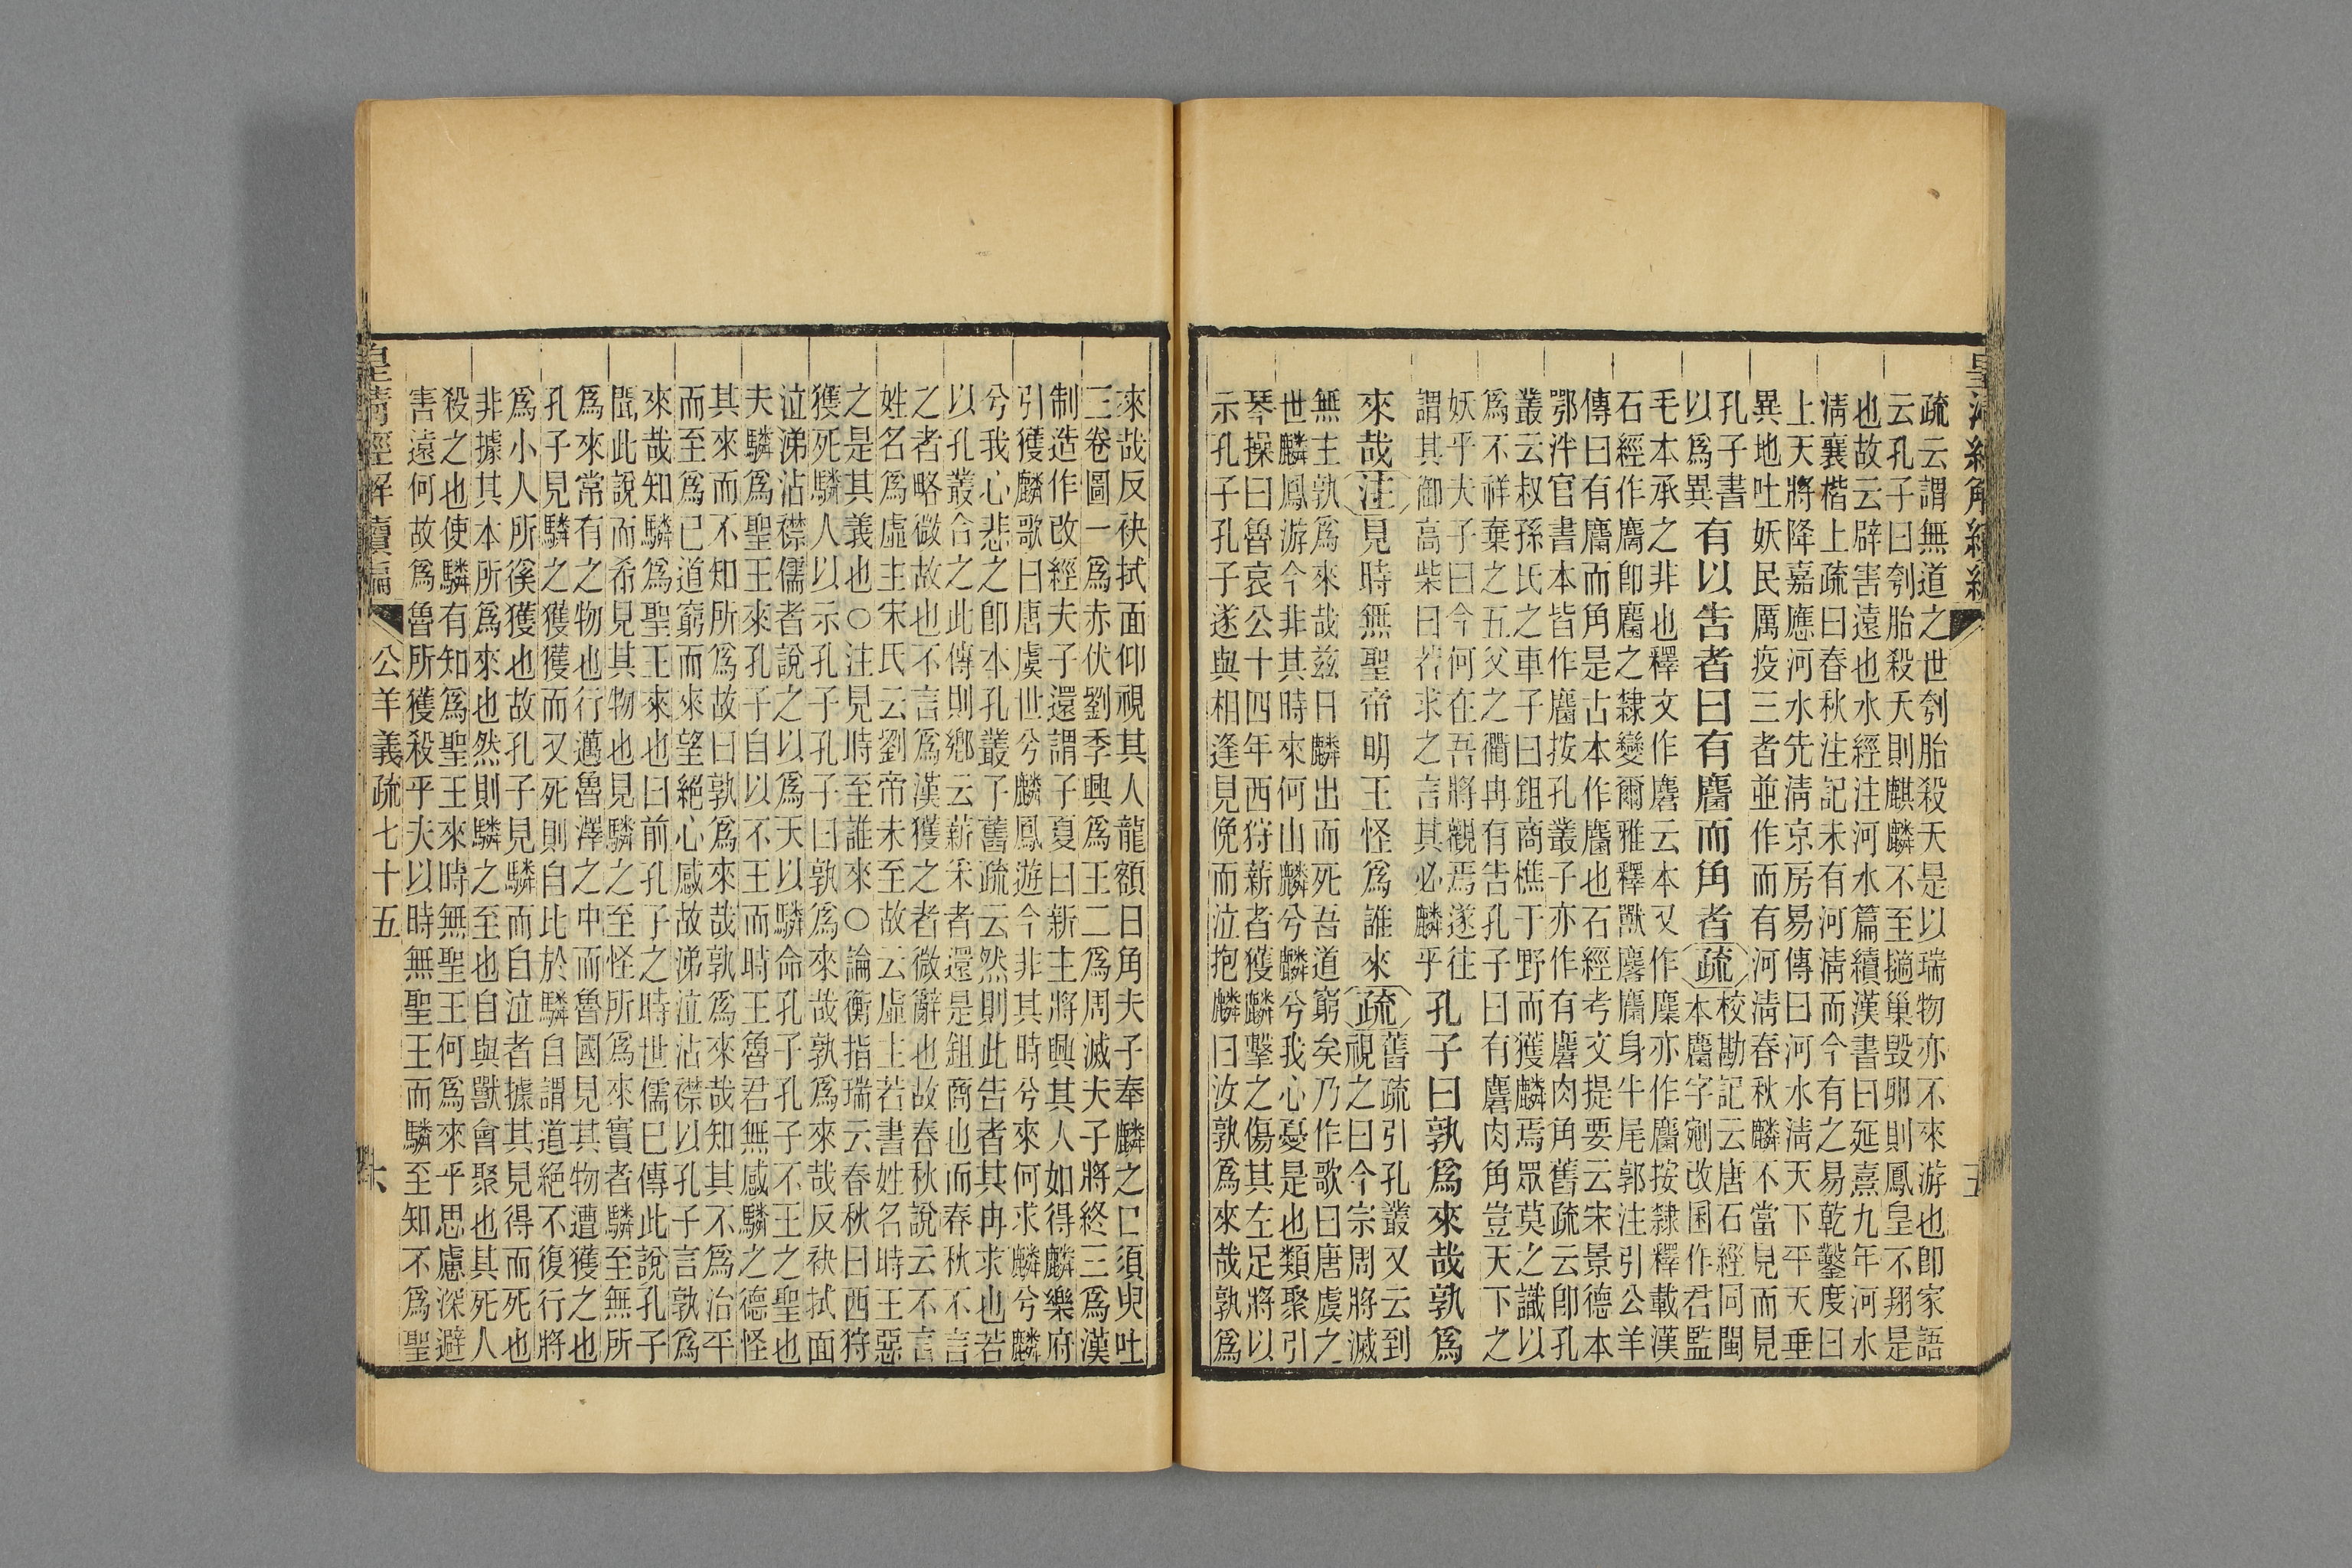 皇清經解續編
五
疏云謂無道之世刳胎殺夭是以瑞物亦不來游也卽家語
云孔子曰刳胎殺夭則麒麟不至擿巢毀卵則鳳皇不翔是
也故云辟害遠也水經注河水篇續漢書曰延熹九年河水
淸襄楷上疏曰春秋注記未有河淸而今有之易乾鑿度曰
上天將降嘉應河水先淸京房易傳曰河水淸天下平天垂
異地吐妖民厲疫三者並作而有河淸春秋麟不當見而見
孔子書
以爲異
有以告者曰有麕而角者疏
校勘記云唐石經同閩
本麕字剜改囷作君監
毛本承之非也釋文作麏云本又作麇亦作麕按隸釋載漢
石經作麕卽麕之隸變爾雅釋獸麐麕身牛尾郭注引公羊
傳曰有麕而角是古本作麕也石經考文提要云宋景德本
鄂泮官書本皆作麕按孔叢子亦作有麏肉角舊疏云卽孔
叢云叔孫氏之車子曰鉏商樵于野而獲麟焉眾莫之識以
爲不祥棄之五父之衢冉有告孔子曰有麏肉角豈天下之
妖乎夫子曰今何在吾將觀焉遂往
謂其御高柴曰若求之言其必麟乎
孔子曰孰爲來哉孰爲
來哉注見時無聖帝明王怪爲誰來疏
舊疏引孔叢又云到
視之曰今宗周將滅
無主孰爲來哉茲日麟出而死吾道窮矣乃作歌曰唐虞之
世麟鳳游今非其時來何山麟兮麟兮我心憂是也類聚引
琴操曰魯哀公十四年西狩薪者獲麟擊之傷其左足將以
示孔子孔子遂與相逢見俛而泣抱麟曰汝孰爲來哉孰爲
來哉反袂拭面仰視其人龍額日角夫子奉麟之口須臾吐
三卷圖一爲赤伏劉季興爲王二爲周滅夫子將終三爲漢
制造作改經夫子還謂子夏曰新主將興其人如得麟樂府
引獲麟歌曰唐虞世兮麟鳳遊今非其時兮來何求麟兮麟
兮我心悲之卽本孔叢子舊疏云然則此告者其冉求也若
以孔叢合之此傳則鄉云薪采者還是鉏商也而春秋不言
之者略微故也不言爲漢獲之者微辭也故春秋說云不言
姓名爲虛主宋氏云劉帝未至故云虛主若書姓名時王惡
之是其義也○注見時至誰來○論衡指瑞云春秋曰西狩
獲死驎人以示孔子孔子曰孰爲來哉孰爲來哉反袂拭面
泣涕沾襟儒者說之以爲天以驎命孔子孔子不王之聖也
夫驎爲聖王來孔子自以不王而時王魯君無感驎之德怪
其來而不知所爲故曰孰爲來哉孰爲來哉知其不爲治平
而至爲已道窮而來望絕心感故涕泣沾襟以孔子言孰爲
來哉知驎爲聖王來也曰前孔子之時世儒已傳此說孔子
聞此說而希見其物也見驎之至怪所爲來實者驎至無所
爲來常有之物也行邁魯澤之中而魯國見其物遭獲之也
孔子見驎之獲獲而又死則自比於驎自謂道絕不復行將
爲小人所徯獲也故孔子見驎而自泣者據其見得而死也
非據其本所爲來也然則驎之至也自與獸會聚也其死人
殺之也使驎有知爲聖王來時無聖王何爲來乎思慮深避
害遠何故爲魯所獲殺乎夫以時無聖王而驎至知不爲聖
皇清經解續編
公羊義疏七十五
六